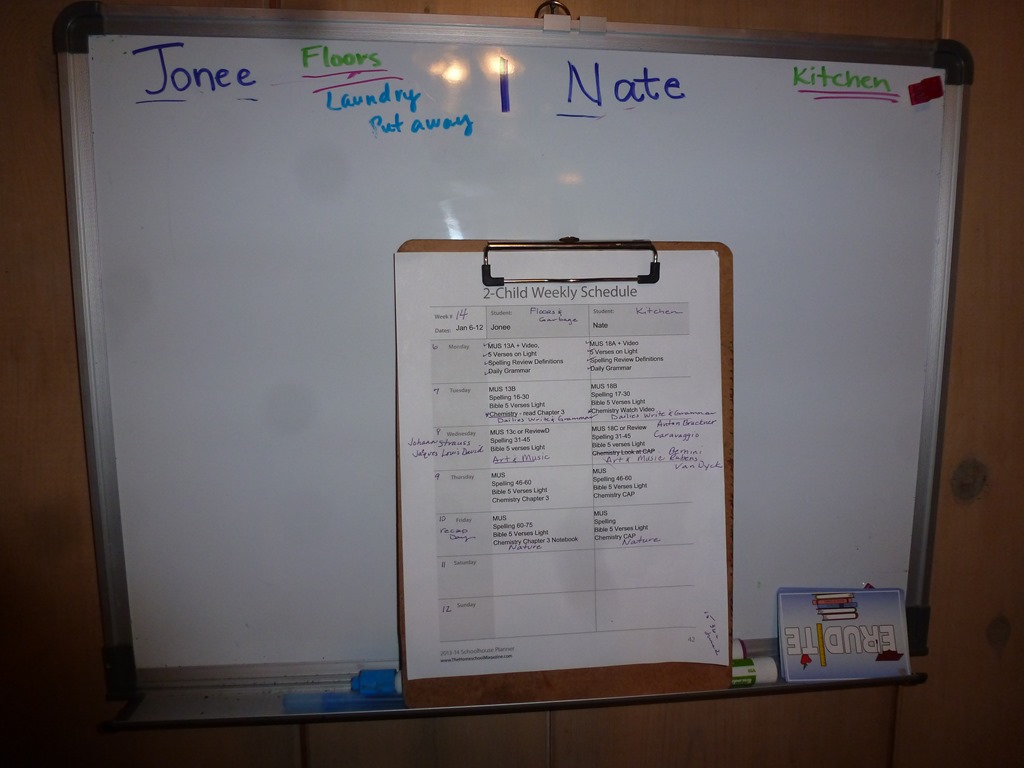 Jonee Floors | Nate Kitchen
Laundry
Put away
2-Child Weekly Schedule
Week # 14 Student: Floors & Student: Kitchen
Garbage
Dates: Jan 6-12 Jonee Nate
6 Monday MUS 13A + Video, MUS 18A + Video
5 Verses on Light 5 Verses on Light
Spelling Review Definitions Spelling Review Definitions
Daily Grammar Daily Grammar
7 Tuesday MUS 13B MUS 18B
Spelling 16-30 Spelling 17-30
Bible 5 Verses Light Bible 5 Verses Light
Chemistry - read Chapter 3 Chemistry Watch Video
Dailies Write & Grammar Dailies Write & Grammar
8 Wednesday MUS 13c or ReviewD MUS 18C or Review Anton Bruckner
Johann Strauss Spelling 31-45 Spelling 31-45 Caravaggio
Jaques Louis David Bible 5 verses Light Bible 5 Verses Light
Chemistry Look at CAP Bernini
Art & Music Art & Music Rubens
Van Dyck
9 Thursday MUS MUS
Spelling 46-60 Spelling 46-60
Bible 5 Verses Light Bible 5 Verses Light
Chemistry Chapter 3 Chemistry CAP
10 Friday MUS MUS
recap Spelling 60-75 Spelling
Day Bible 5 Verses Light Bible 5 Verses Light
Chemistry Chapter 3 Notebook Chemistry CAP
Nature Nature
11 Saturday
12 Sunday
2013-14 Schoolhouse Planner 42
www.TheHomeschoolMagazine.com
ERUDITE